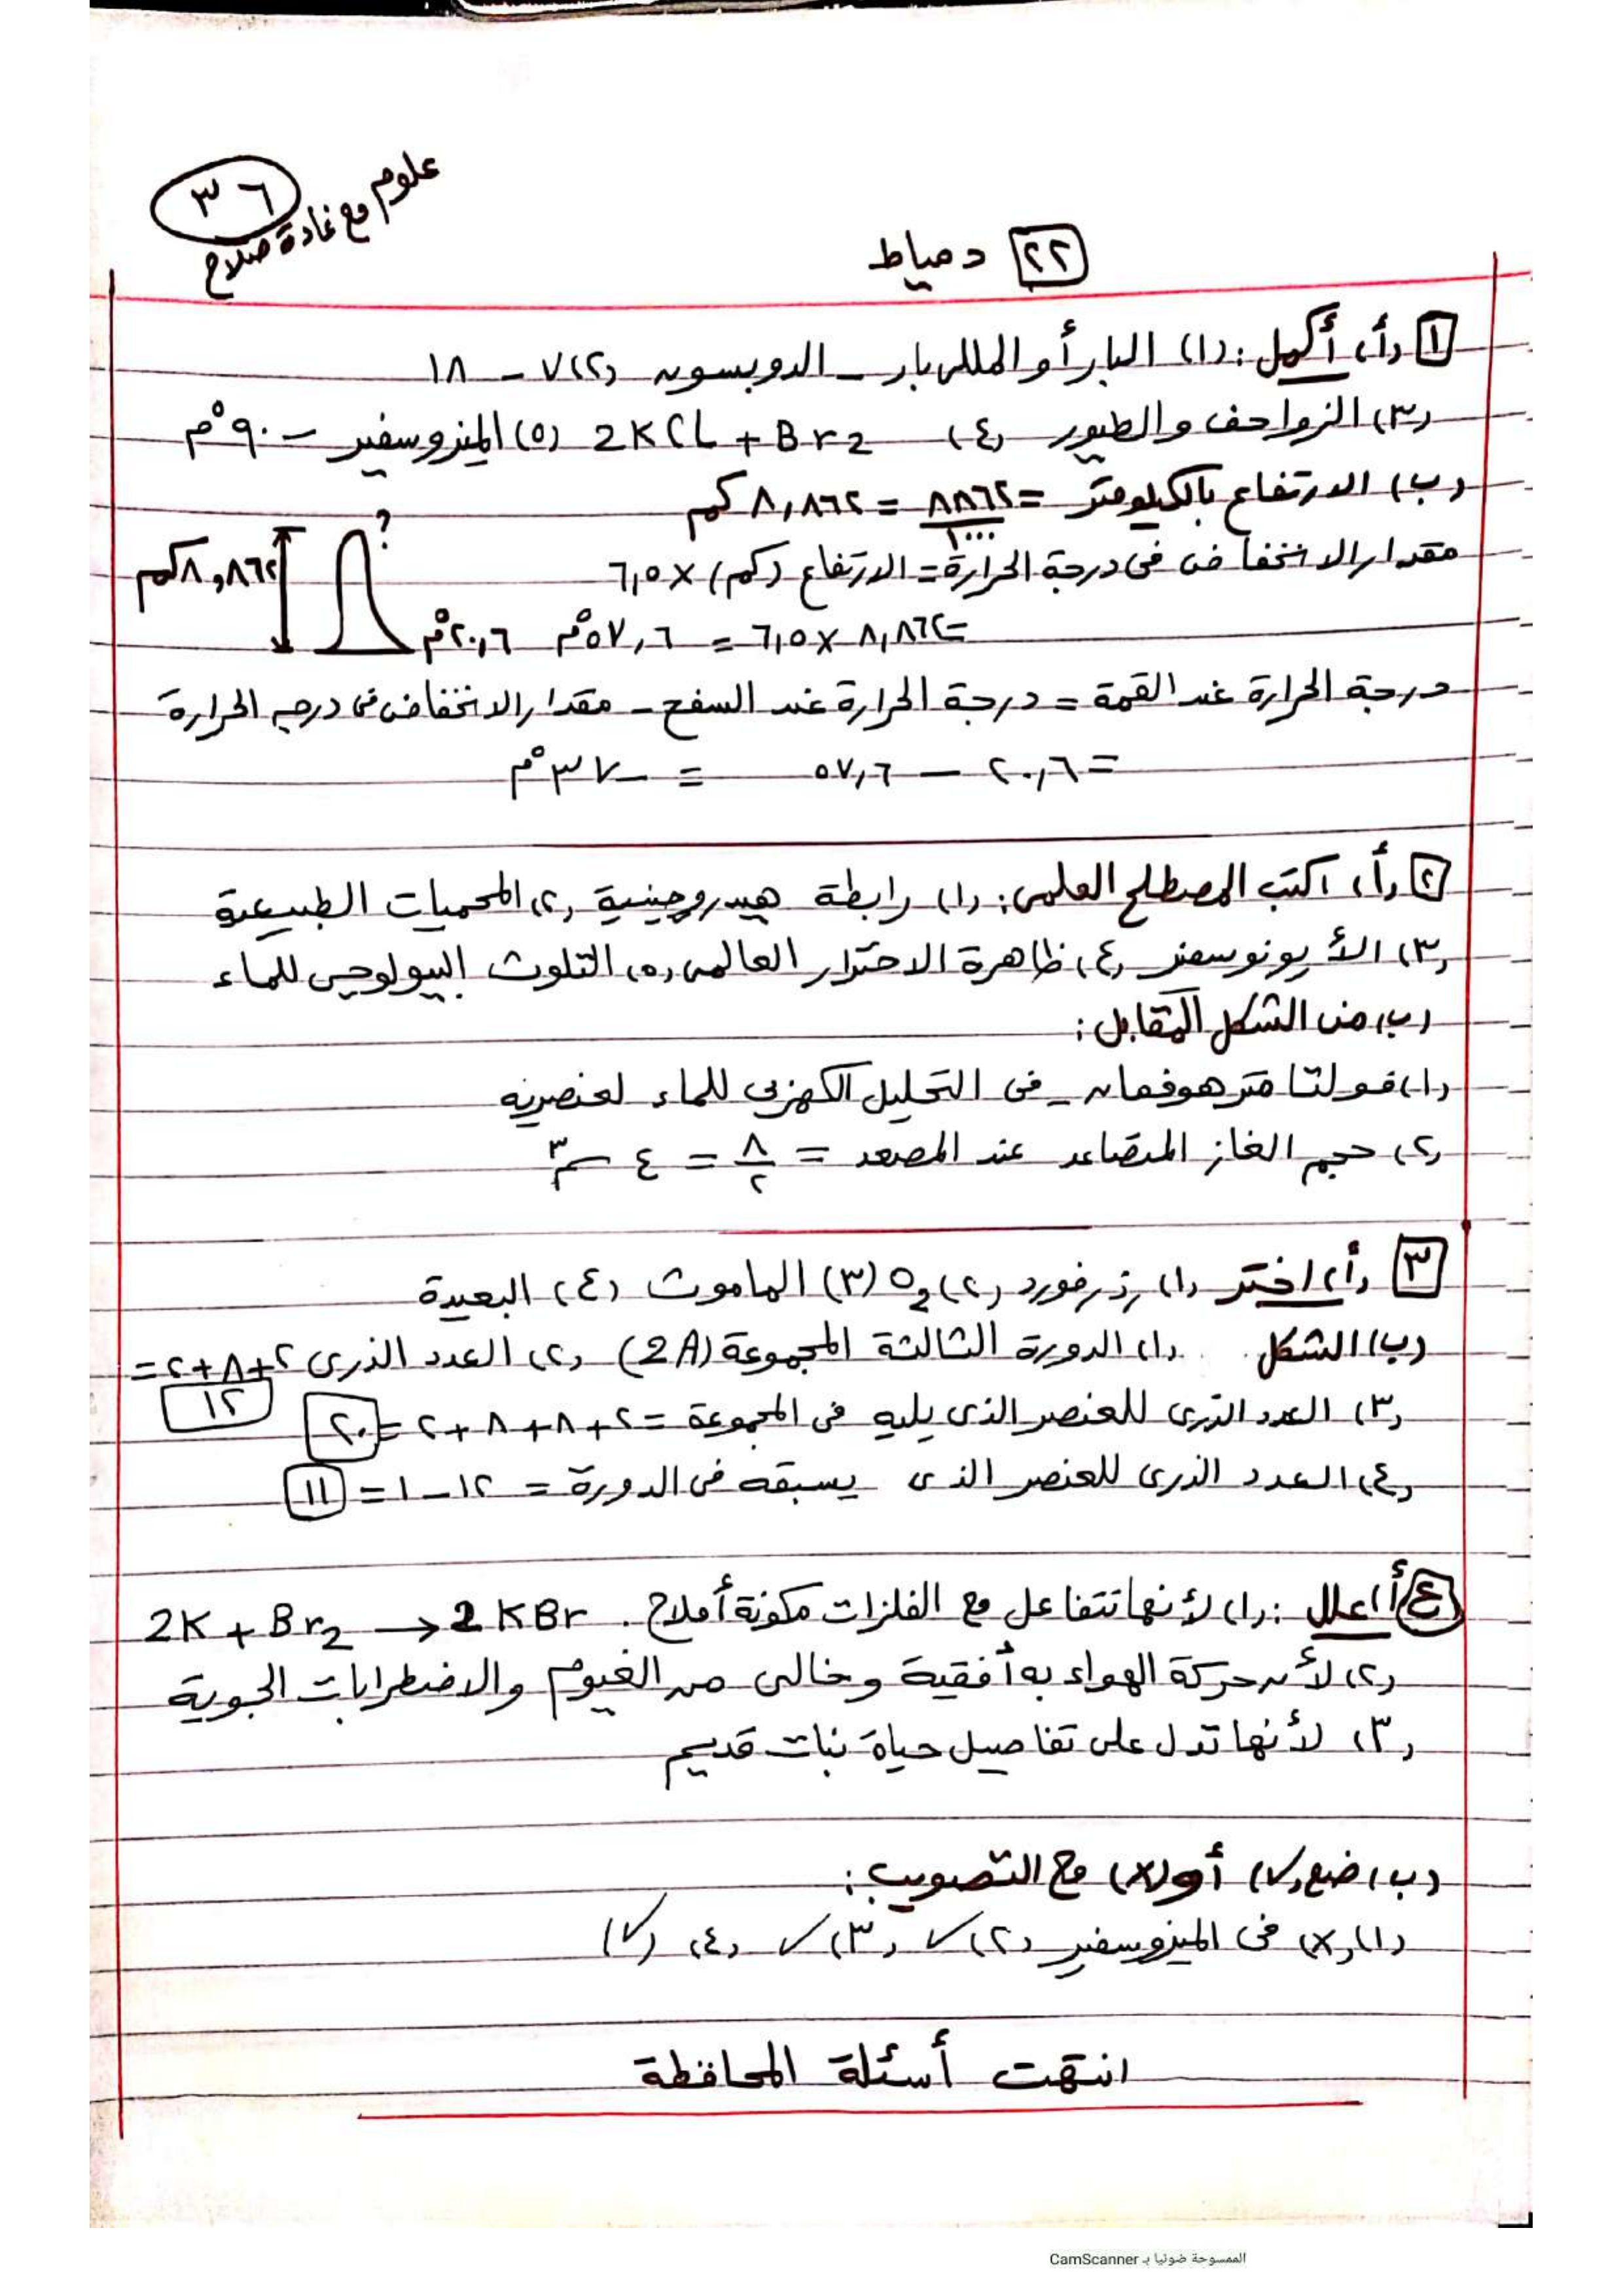 علوم مع غادة صلاح
٣٦
٢٢ دمياط
١ (أ) أكمل: (١) البار أو المللى بار - الدوبسون (٢) ٧ - ١٨
(٣) الزواحف والطيور (٤) 2KCl + Br2 (٥) الميزوسفير - ٩٠°م
(ب) الارتفاع بالكيلومتر = ٨٨٦٢/١٠٠٠ = ٨,٨٦٢ كم
مقدار الانخفاض فى درجة الحرارة = الارتفاع (كم) × ٦,٥
= ٨,٨٦٢ × ٦,٥ = ٥٧,٦°م
؟
٨,٨٦٢ كم
٢٠,٦°م
درجة الحرارة عند القمة = درجة الحرارة عند السفح - مقدار الانخفاض فى درجة الحرارة
= ٢٠,٦ - ٥٧,٦ = -٣٧°م
٢ (أ) اكتب المصطلح العلمى: (١) رابطة هيدروجينية (٢) المحميات الطبيعية
(٣) الأيونوسفير (٤) ظاهرة الاحترار العالمى (٥) التلوث البيولوجى للماء
(ب) من الشكل المقابل:
(١) فولتامتر هوفمان - فى التحليل الكهربى للماء لعنصريه
(٢) حجم الغاز المتصاعد عند المصعد = ٨/٢ = ٤ سم٣
٣ (أ) اختر (١) رذرفورد (٢) O2 (٣) الماموث (٤) البعيدة
(ب) الشكل (١) الدورة الثالثة المجموعة (2A) (٢) العدد الذرى ٢+٨+٢=
١٢
(٣) العدد الذرى للعنصر الذى يليه فى المجموعة = ٢+٨+٨+٢ = ٢٠
(٤) العدد الذرى للعنصر الذى يسبقه فى الدورة = ١٢ - ١ = ١١
٤ أ) علل: (١) لأنها تتفاعل مع الفلزات مكونة أملاح. 2K + Br2 → 2KBr
(٢) لأن حركة الهواء به أفقية وخالى من الغيوم والاضطرابات الجوية
(٣) لأنها تدل على تفاصيل حياة نبات قديم
(ب) ضع (✓) أو (×) مع التصويب:
(١) (×) فى الميزوسفير (٢) ✓ (٣) ✓ (٤) (✓)
انتهت أسئلة المحافظة
الممسوحة ضوئيا بـ CamScanner